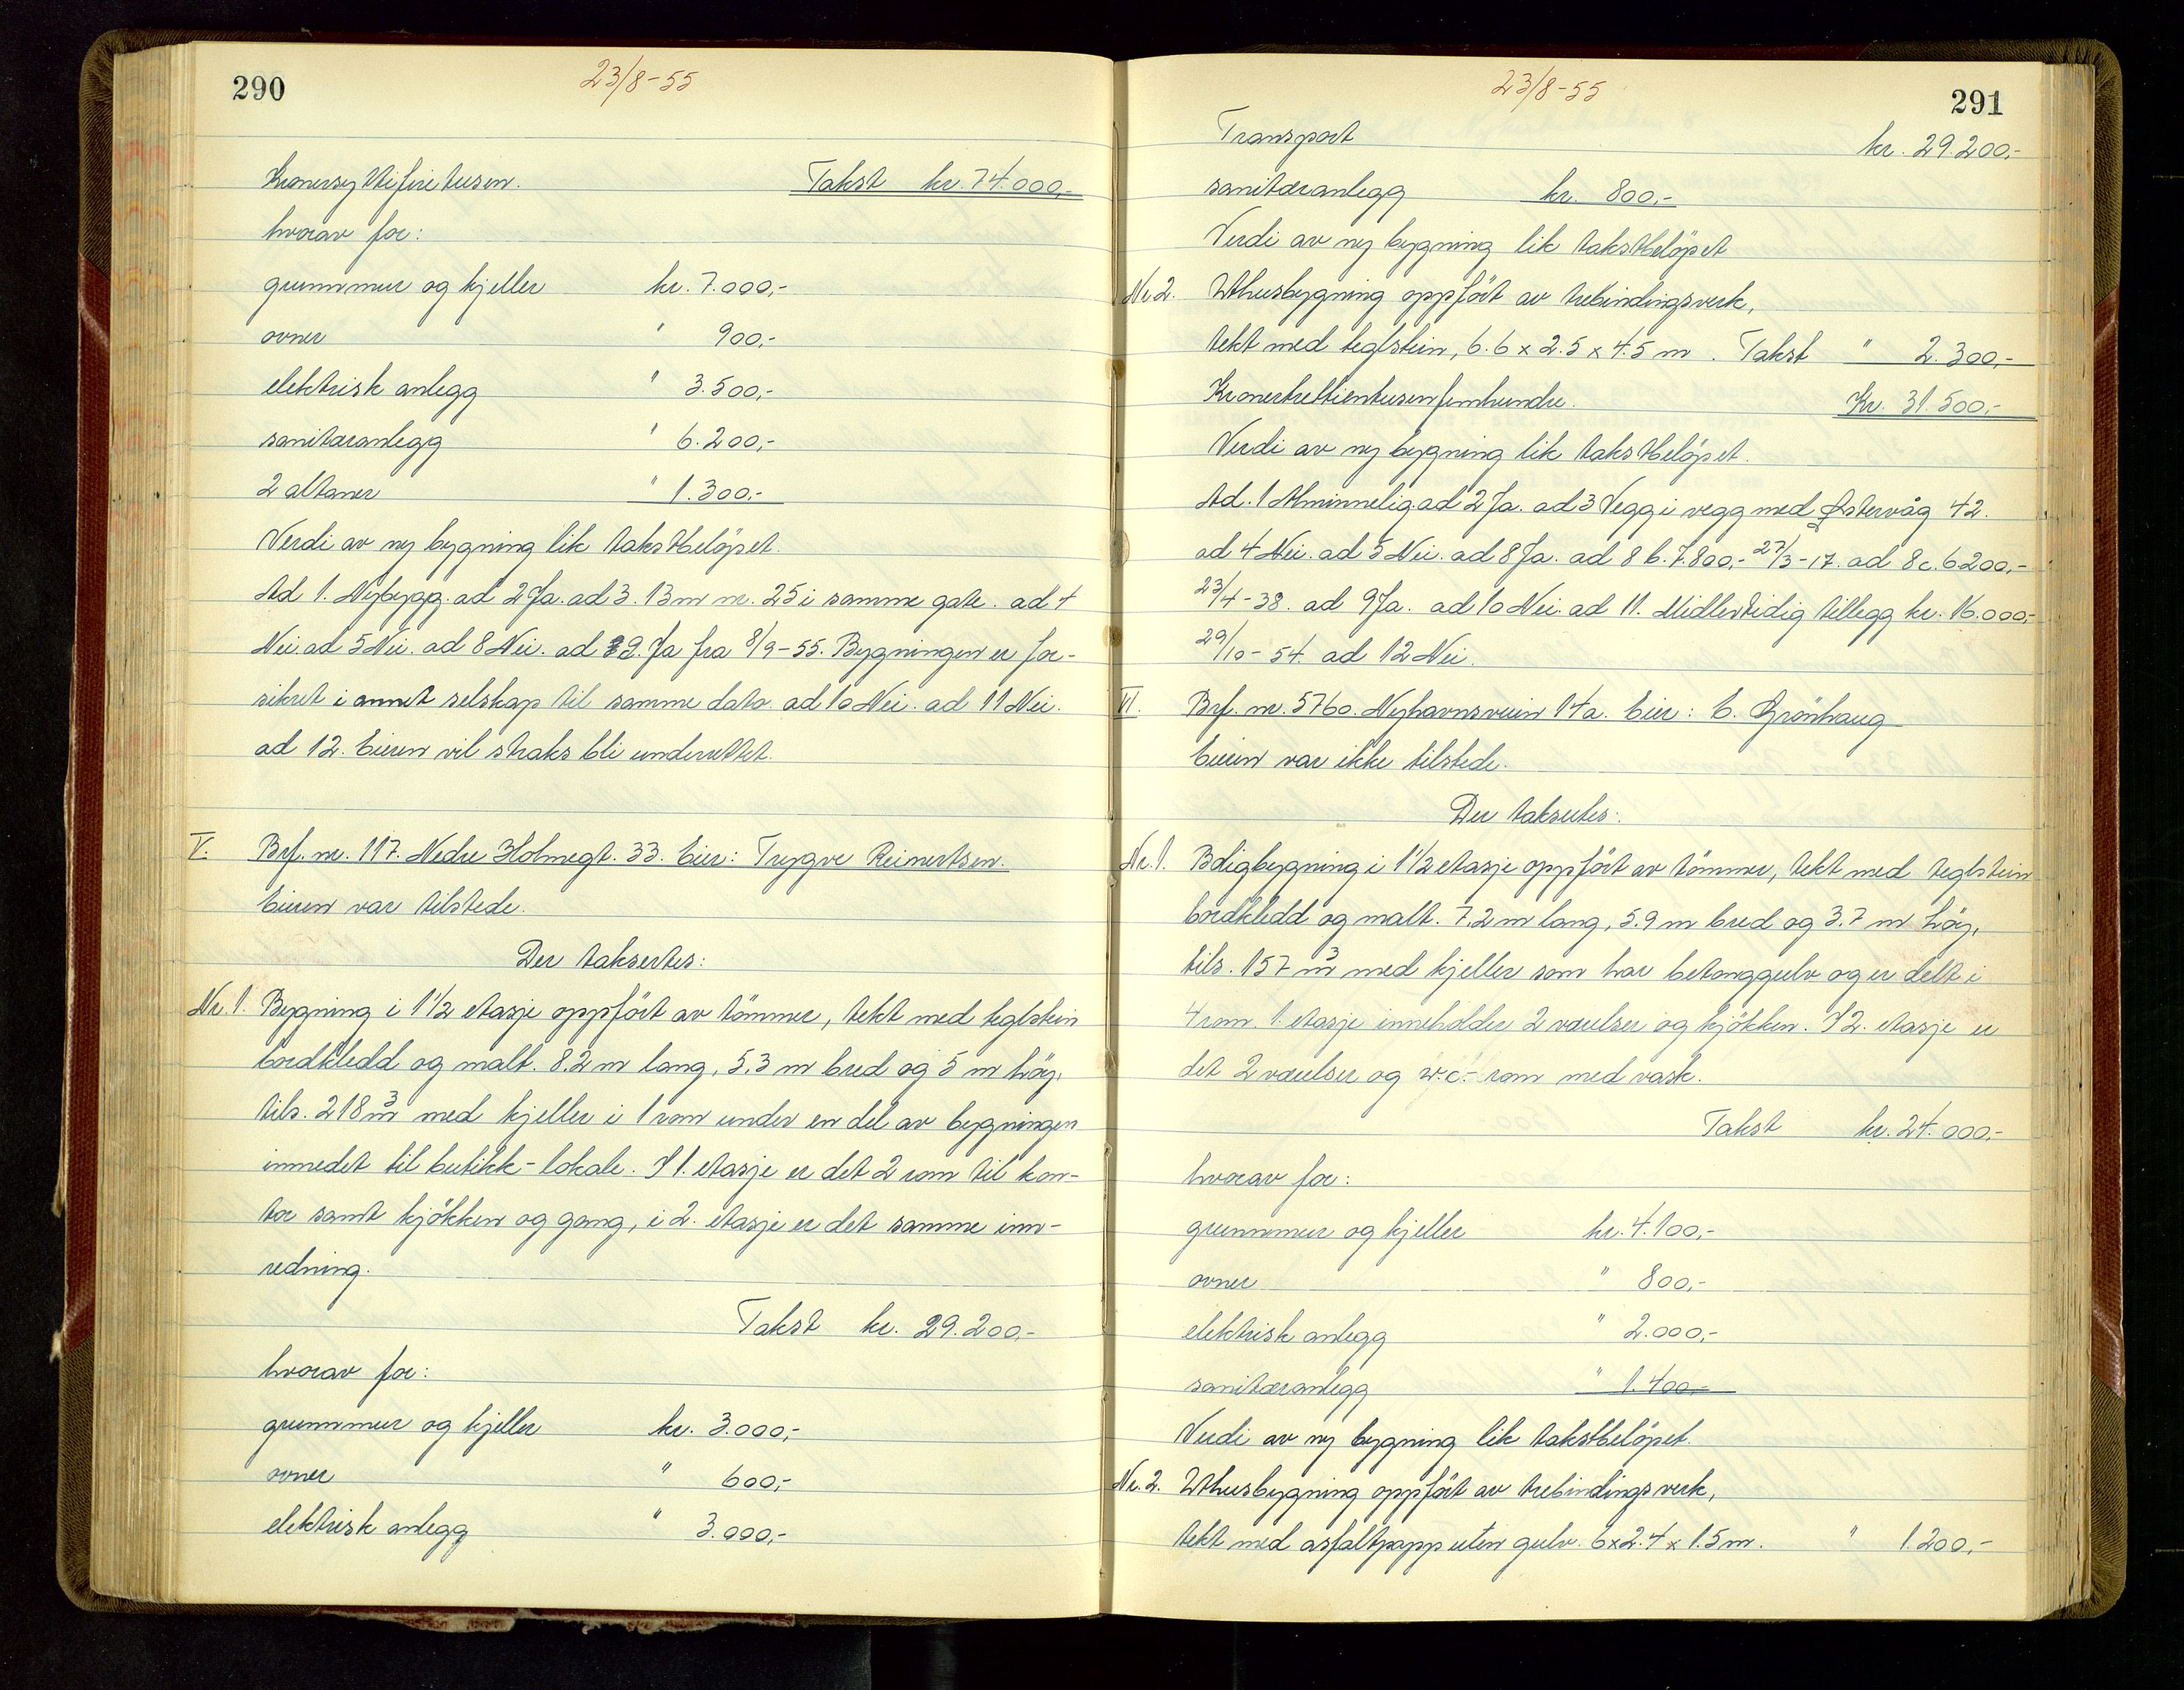 290
23/8-55
Kronersyttifiretusen. Takst kr. 74.000,-
hvorav for:
grunnmur og kjeller kr. 7.000,-
ovner " 900,-
elektrisk anlegg " 3.500,-
sanitæranlegg " 6.200,-
2 altaner " 1.300,-
Verdi av ny bygning lik takstbelöpet.
Ad 1. Nybygg. ad 2 Ja. ad 3. 13 m nr. 25 i samme gate. ad 4
Nei. ad 5 Nei. ad 8 Nei. ad 9. Ja fra 8/9-55. Bygningen er for-
sikret i annet selskap til samme dato. ad 10 Nei. ad 11 Nei.
ad 12. Eieren vil straks bli underrettet.
V. Brf. nr. 117. Nedre Holmegt. 33. Eier: Trygve Reinertsen.
Eieren var tilstede.
Der taksertes:
Nr. 1. Bygning i 1 1/2 etasje oppfört av tömmer, tekt med teglstein
bordkledd og malt. 8.2 m lang, 5.3 m bred og 5 m höy,
tils. 218 m3 med kjeller i 1 rom under en del av bygningen
innredet til butikk-lokale. I 1. etasje er det 2 rom til kon-
tor samt kjökken og gang, i 2. etasje er det samme inn-
redning.
Takst kr. 29.200,-
hvorav for:
grunnmur og kjeller kr. 3.000,-
ovner " 600,-
elektrisk anlegg " 3.000,-
291
23/8-55
Transport kr. 29.200,-
sanitæranlegg kr. 800,-
Verdi av ny bygning lik takstbelöpet
Nr. 2. Uthusbygning oppfört av trebindingsverk,
tekt med teglstein, 6.6 x 2.5 x 4.5 m. Takst " 2.300,-
Kronertrettientusenfemhundre. Kr. 31.500,-
Verdi av ny bygning lik takstbelöpet.
Ad. 1 Alminnelig. ad 2 Ja. ad 3 Vegg i vegg med Østervåg 42.
ad 4 Nei. ad 5 Nei. ad 8 Ja. ad 8 b. 7.800,- 27/3-17. ad 8c. 6200,-
23/4-38. ad 9 Ja. ad 10 Nei. ad 11. Midlertidig tillegg kr. 16.000,-
29/10-54. ad 12 Nei.
VI. Brf. nr. 5760. Nyhavnsveien 14a. Eier: E. Grönhaug
Eieren var ikke tilstede.
Der taksertes:
Nr. 1. Boligbygning i 1 1/2 etasje oppfört av tömmer, tekt med teglstein
bordkledd og malt. 7.2 m lang, 5.9 m bred og 3.7 m höy,
tils. 157 m3 med kjeller som har betonggulv og er delt i
4 rom. 1. etasje inneholder 2 værelser og kjökken. I 2. etasje er
det 2 værelser og w.c.-rom med vask.
Takst kr. 24.000,-
hvorav for:
grunnmur og kjeller kr. 4.100,-
ovner " 800,-
elektrisk anlegg " 2.000,-
sanitæranlegg " 1.400,-
Verdi av ny bygning lik takstbelöpet.
Nr. 2. Uthusbygning oppfört av trebindingsverk,
tekt med asfaltpapp uten gulv. 6 x 2.4 x 1.5 m. " 1.200,-